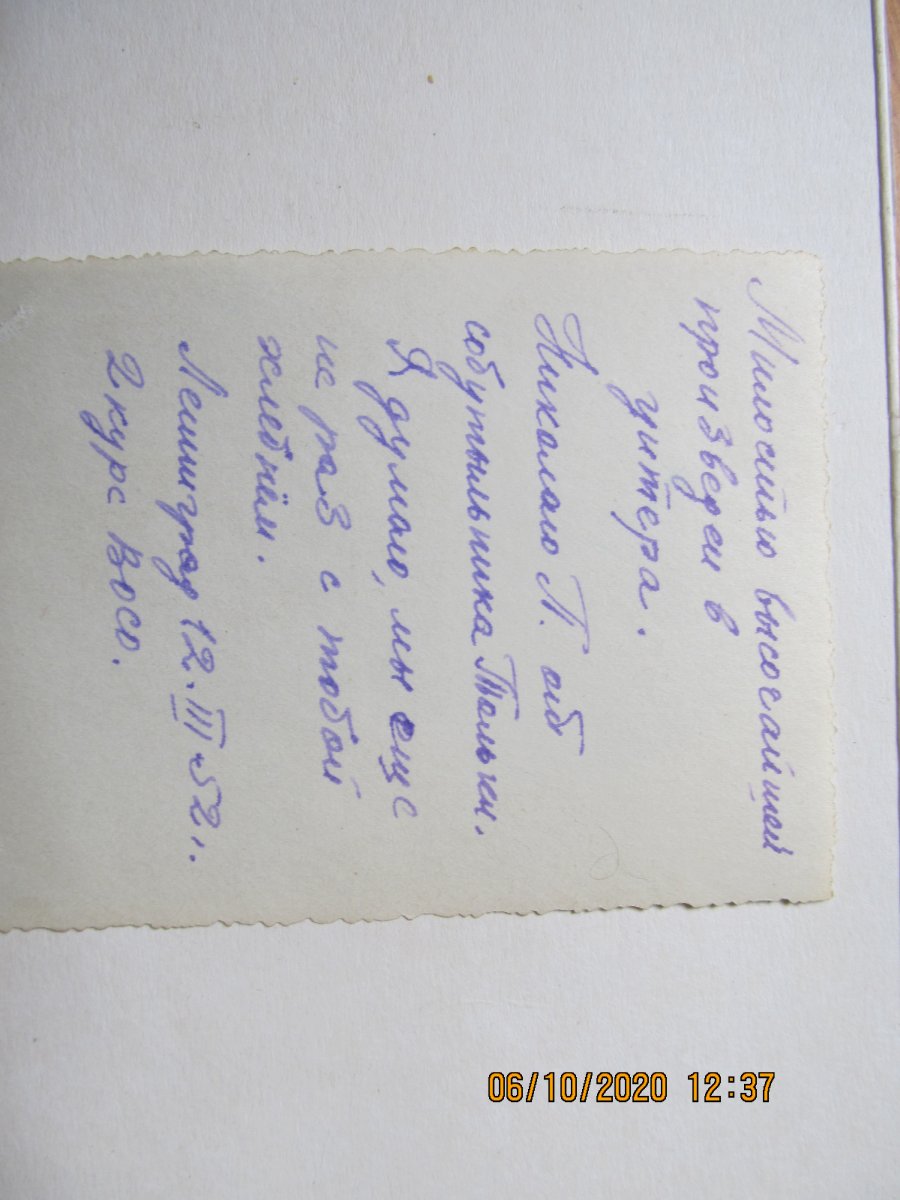 Милостью высочайшей
произведен в
унтера.
Николаю Л. от
собутыльника Тольки.
Я думаю, мы еще
не раз с тобой
хлебнём.
Ленинград 12.III 52 г.
2 курс ВОСО.
06/10/2020 12:37